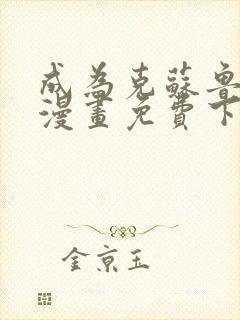 成為克蘇魯
漫畫免費下
金京玉